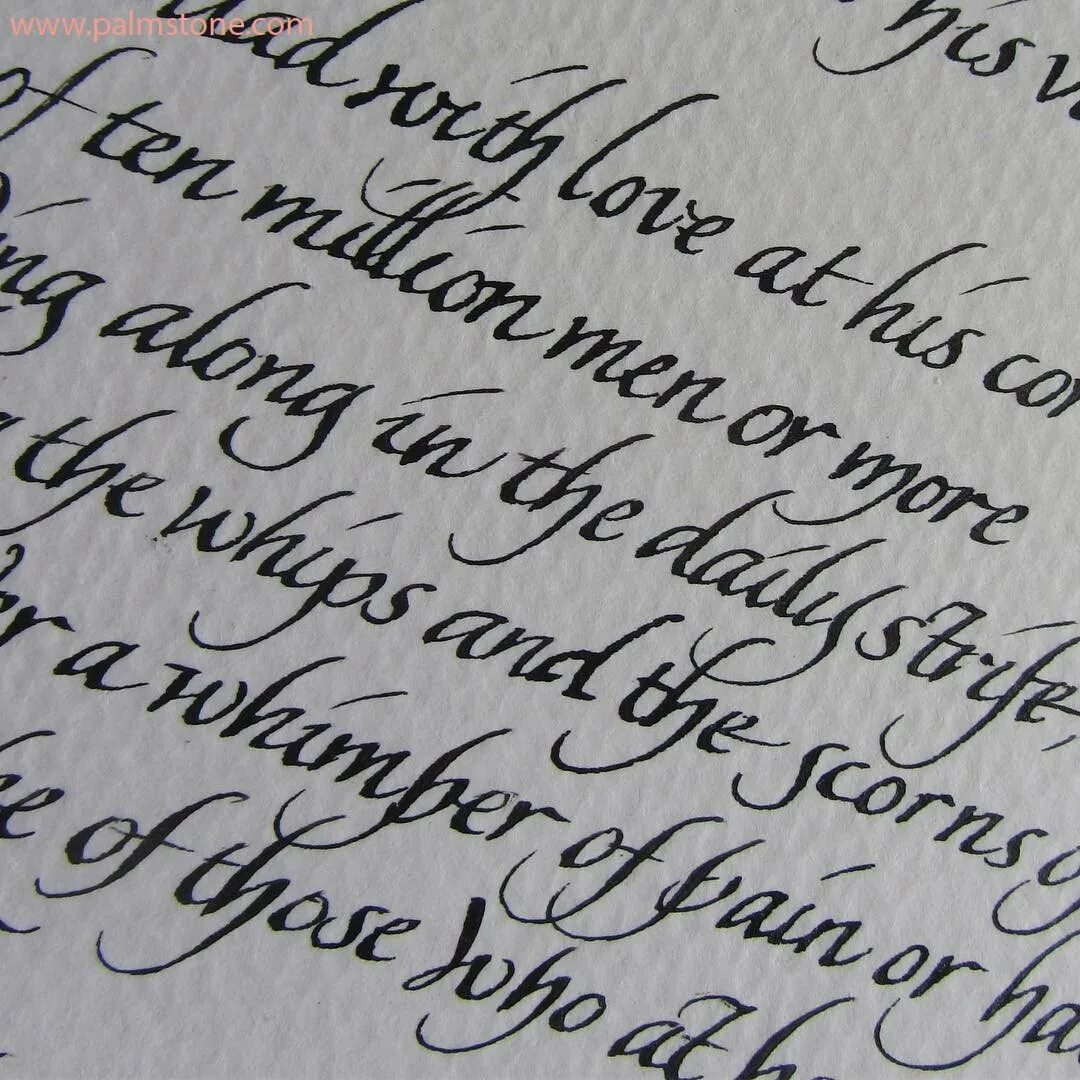 www.palmstone.com
his v
ad with love at his co
of ten million men or more
ing along in the daily strife,
the whips and the scorns
er a whimper of pain or ha
of those who at h